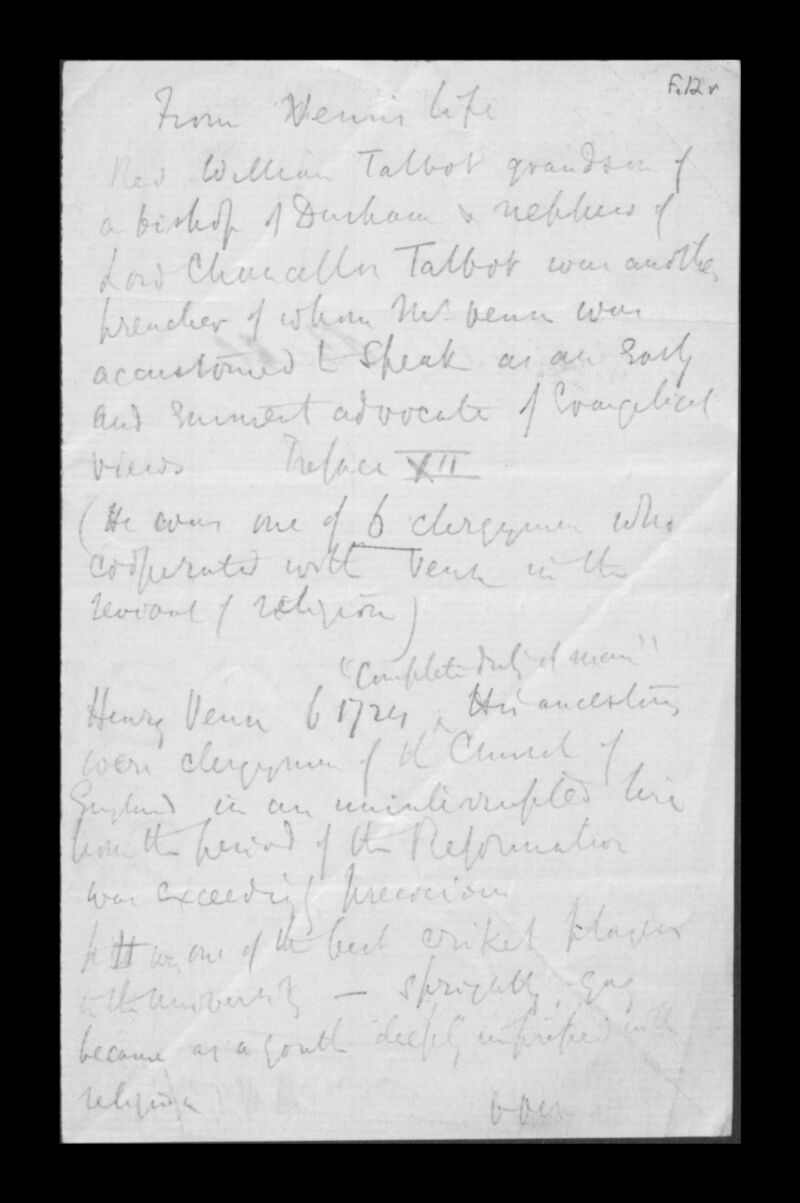 F.12 r
From Venn's life
Rev William Talbot grandson of
a bishop of Durham & nephew of
Lord Chancellor Talbot was another
preacher of whom Mr Venn was
accustomed to speak as an early
and eminent advocate of Evangelical
views Preface XII
(He was one of 6 clergymen who
cooperated with Venn in the
revival of religion)
"Complete duty of man"
Henry Venn b 1724 ^ His ancestors
were clergymen of the Church of
England in an uninterrupted line
from the period of the Reformation
was exceedingly precocious
was one of the best cricket players
in the university — sprightly, gay
became as a youth deeply impressed with
religion
over